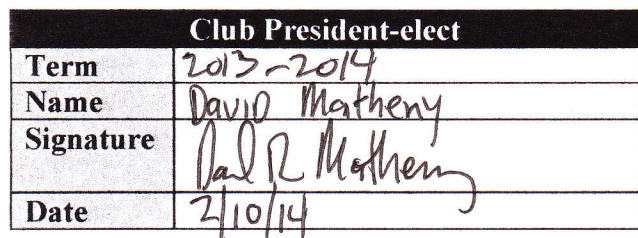 Club President-elect
Term 2013-2014
Name David Matheny
Signature David R Matheny
Date 2/10/14